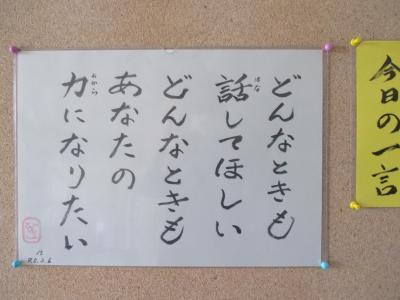 今日の一言
どんなときも
話してほしい
はな
どんなときも
あなたの
力になりたい
ちから